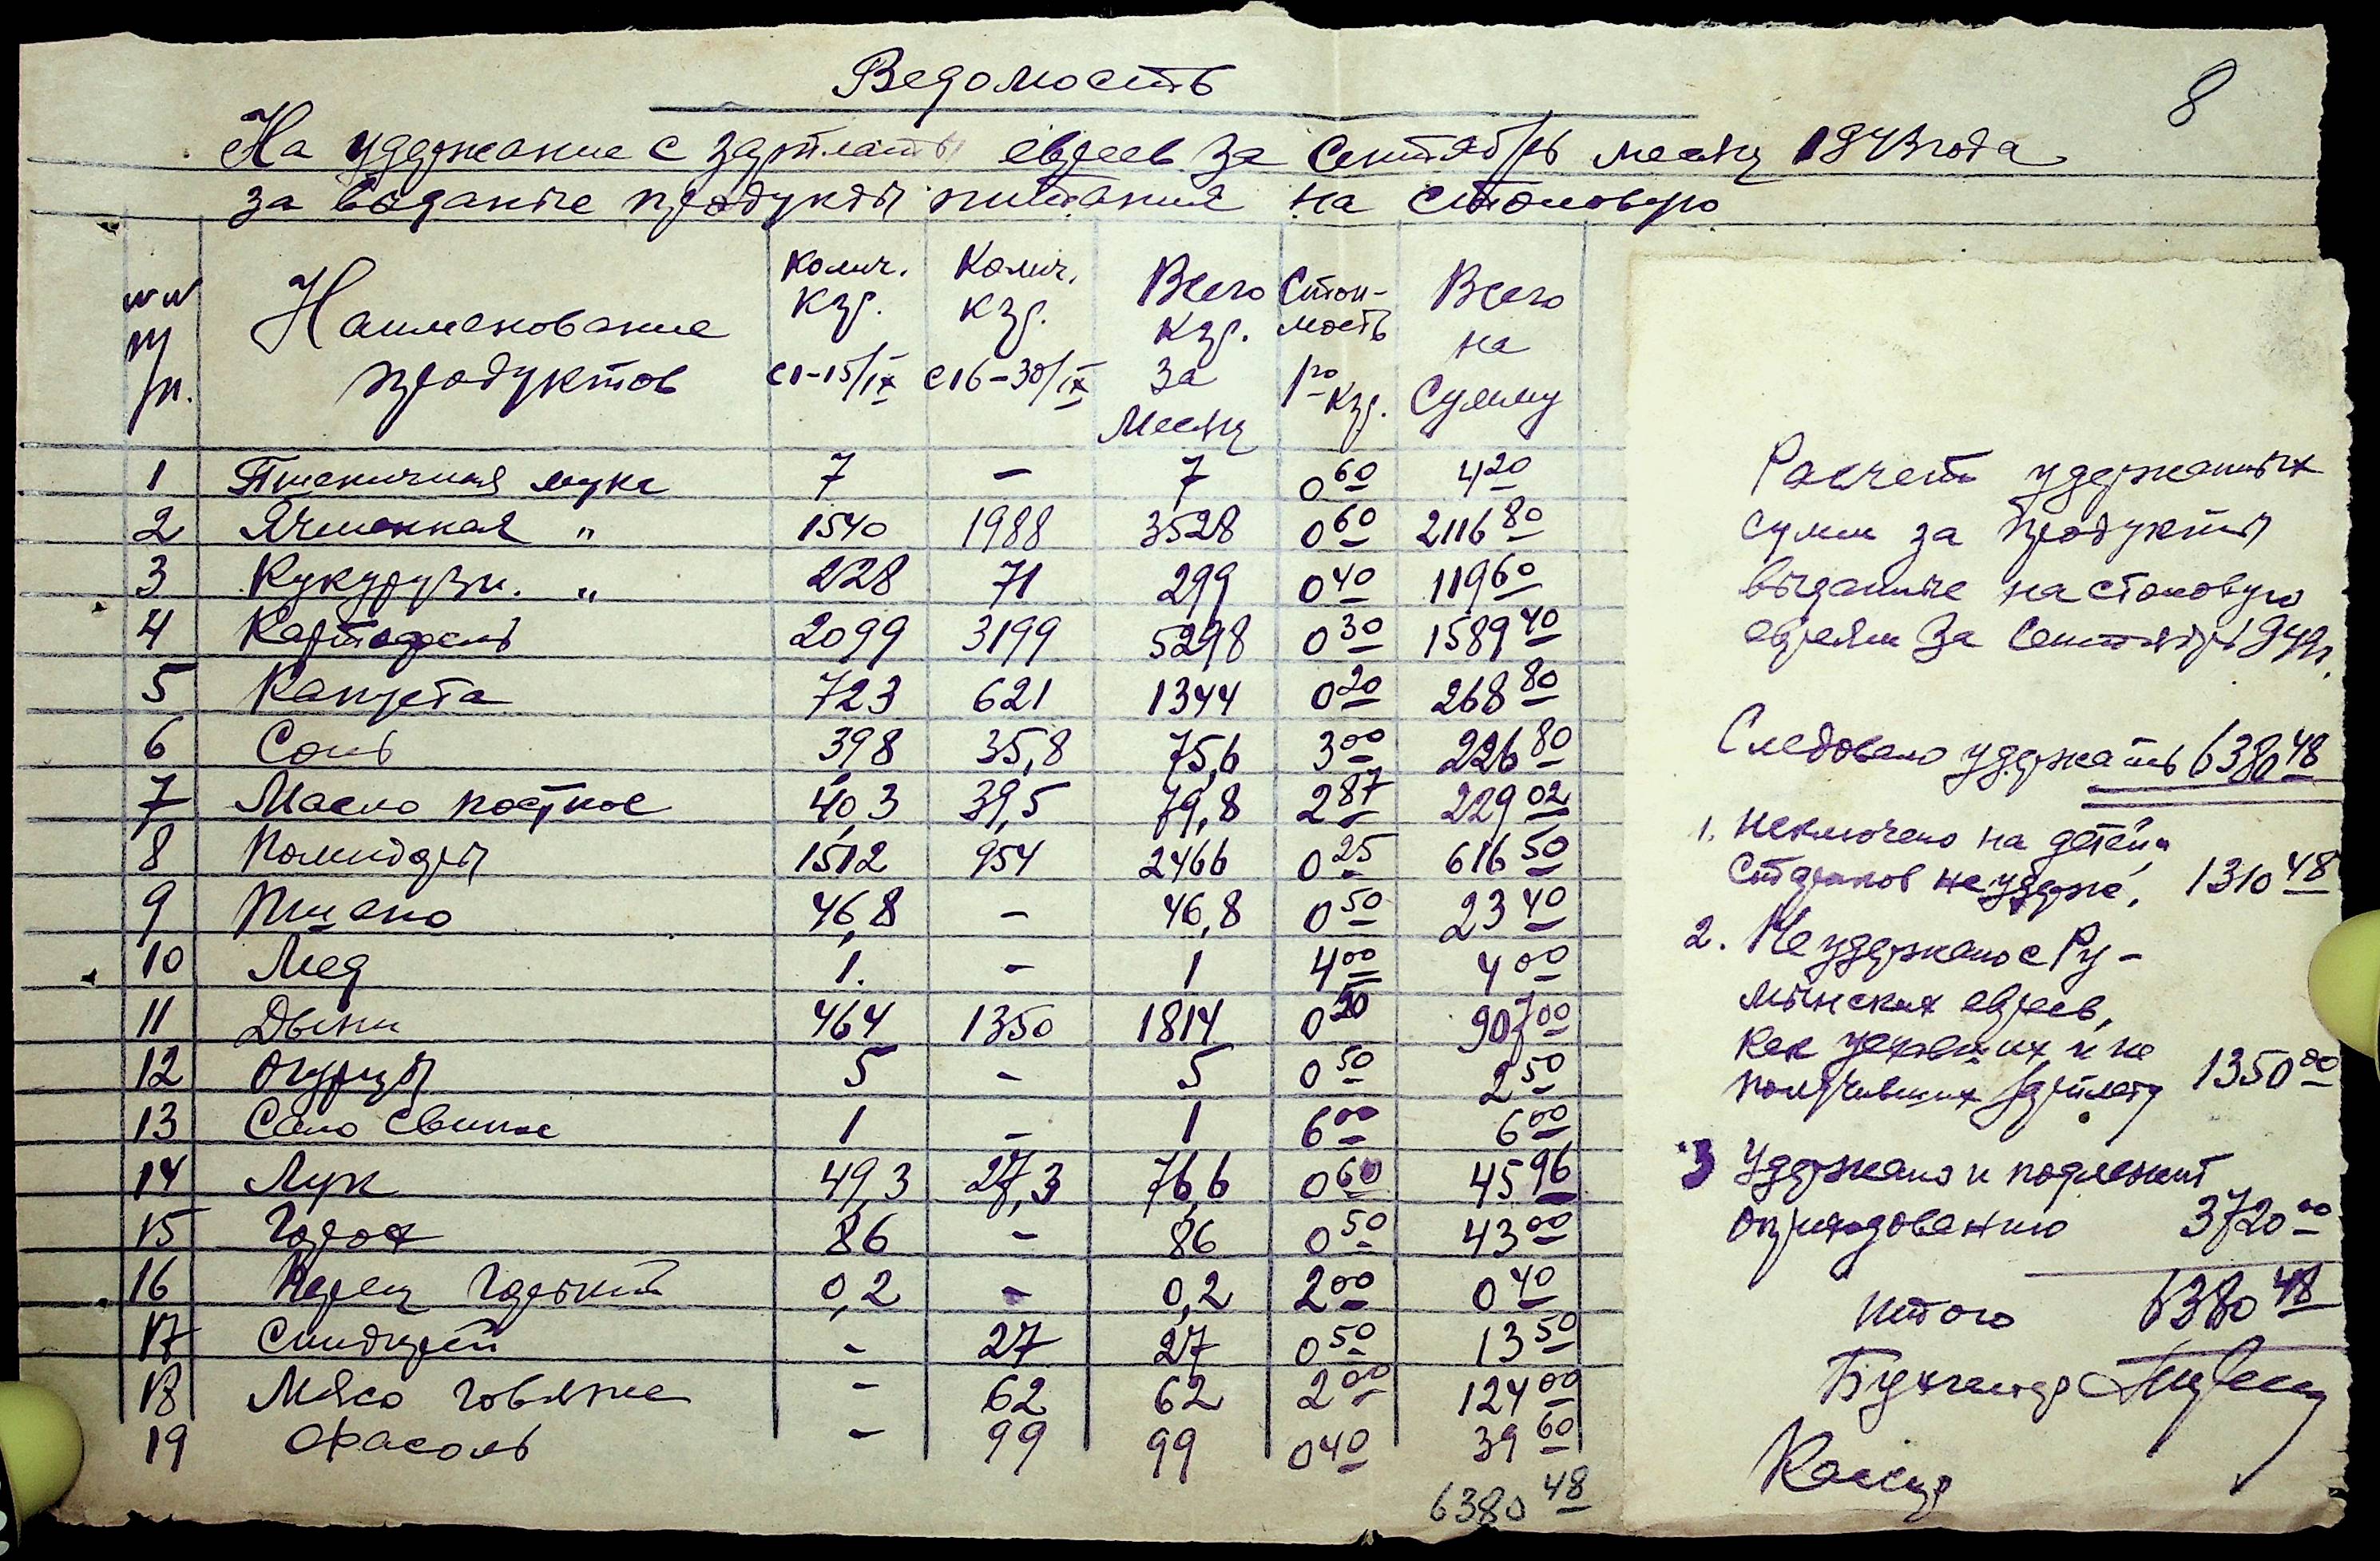 8
Ведомость
На удержание с зарплаты евреев за Сентябрь месяц 1943 года
за выданые продукты питания на столовую
№№ п/п. Наименование продуктов Колич. Кгр. с 1-15/IX Колич. Кгр. с 16-30/IX Всего Кгр. за Месяц Стои-мость 1го Кгр. Всего на Сумму
1 Пшеничная мука 7 - 7 0 60 4 20
2 Ячменная " 1540 1988 3528 0 60 2116 80
3 Кукурузн. " 228 71 299 0 40 119 60
4 Картофель 2099 3199 5298 0 30 1589 40
5 Капуста 723 621 1344 0 20 268 80
6 Соль 39,8 35,8 75,6 3 00 226 80
7 Масло постное 40,3 39,5 79,8 2 87 229 02
8 Помидоры 1512 954 2466 0 25 616 50
9 Пшено 46,8 - 46,8 0 50 23 40
10 Мед 1. - 1 4 00 4 00
11 Дыни 464 1350 1814 0 50 907 00
12 Огурцы 5 - 5 0 50 2 50
13 Сало свиное 1 - 1 6 00 6 00
14 Лук 49,3 27,3 76,6 0 60 45 96
15 Горох 86 - 86 0 50 43 00
16 Перец Горький 0,2 - 0,2 2 00 0 40
17 - 27 27 0 50 13 50
18 Мясо говяжье - 62 62 2 00 124 00
19 Фасоль - 99 99 0 40 39 60
6380 48
Расчет удержаных
сумм за продукты
выданные на столовую
евреям за Сентябрь 194
Следовало удержать 6380 48
1. Исключено на детей и
стариков не удерж. 1310 48
2. Не удержано с Ру-
мынских евреев,
как уехавших и не
получивших зарплату 1350 00
3 Удержано и подлежит
оприходованию 3720 00
Итого 6380 48
Бухгалтер
Кассир